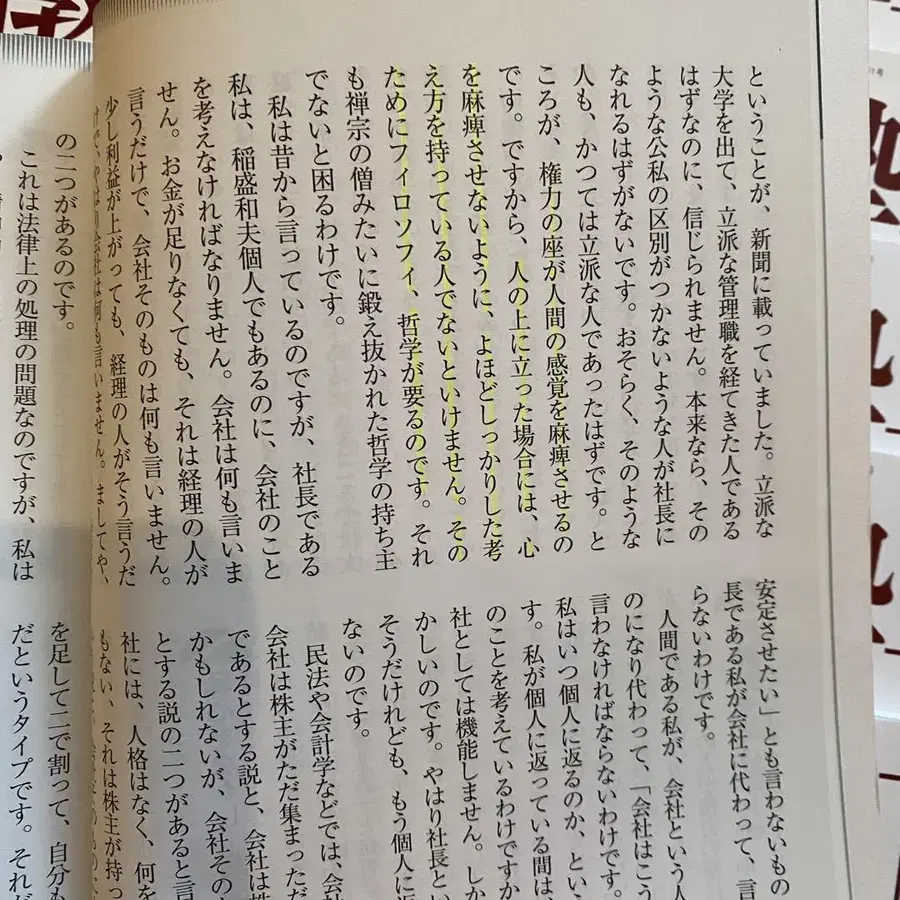 ということが、新聞に載っていました。立派な
大学を出て、立派な管理職を経てきた人である
はずなのに、信じられません。本来なら、その
ような公私の区別がつかないような人が社長に
なれるはずがないです。おそらく、そのような
人も、かつては立派な人であったはずです。と
ころが、権力の座が人間の感覚を麻痺させるの
です。ですから、人の上に立った場合には、心
を麻痺させないように、よほどしっかりした考
え方を持っている人でないといけません。その
ためにフィロソフィ、哲学が要るのです。それ
も禅宗の僧みたいに鍛え抜かれた哲学の持ち主
でないと困るわけです。
私は昔から言っているのですが、社長である
私は、稲盛和夫個人でもあるのに、会社のこと
を考えなければなりません。会社は何も言いま
せん。お金が足りなくても、それは経理の人が
言うだけで、会社そのものは何も言いません。
少し利益が上がっても、経理の人がそう言うだ
けで、やはり会社は何も言いません。ましてや、
安定させたい」とも言わないもの
長である私が会社に代わって、言
らないわけです。
人間である私が、会社という人
のになり代わって、「会社はこう
言わなければならないわけです。
私はいつ個人に返るのか、とい
す。私が個人に返っている間は、
のことを考えているわけですか
社としては機能しません。しか
かしいのです。やはり社長と
そうだけれども、もう個人に
ないのです。
民法や会計学などでは、会社
会社は株主がただ集まっただ
であるとする説と、会社は株
かもしれないが、会社その
とする説の二つがあると言
社には、人格はなく、何を
もない、それは株主が持っ
の二つがあるのです。
これは法律上の処理の問題なのですが、私は
を足して二で割って、自分も
だというタイプです。それが